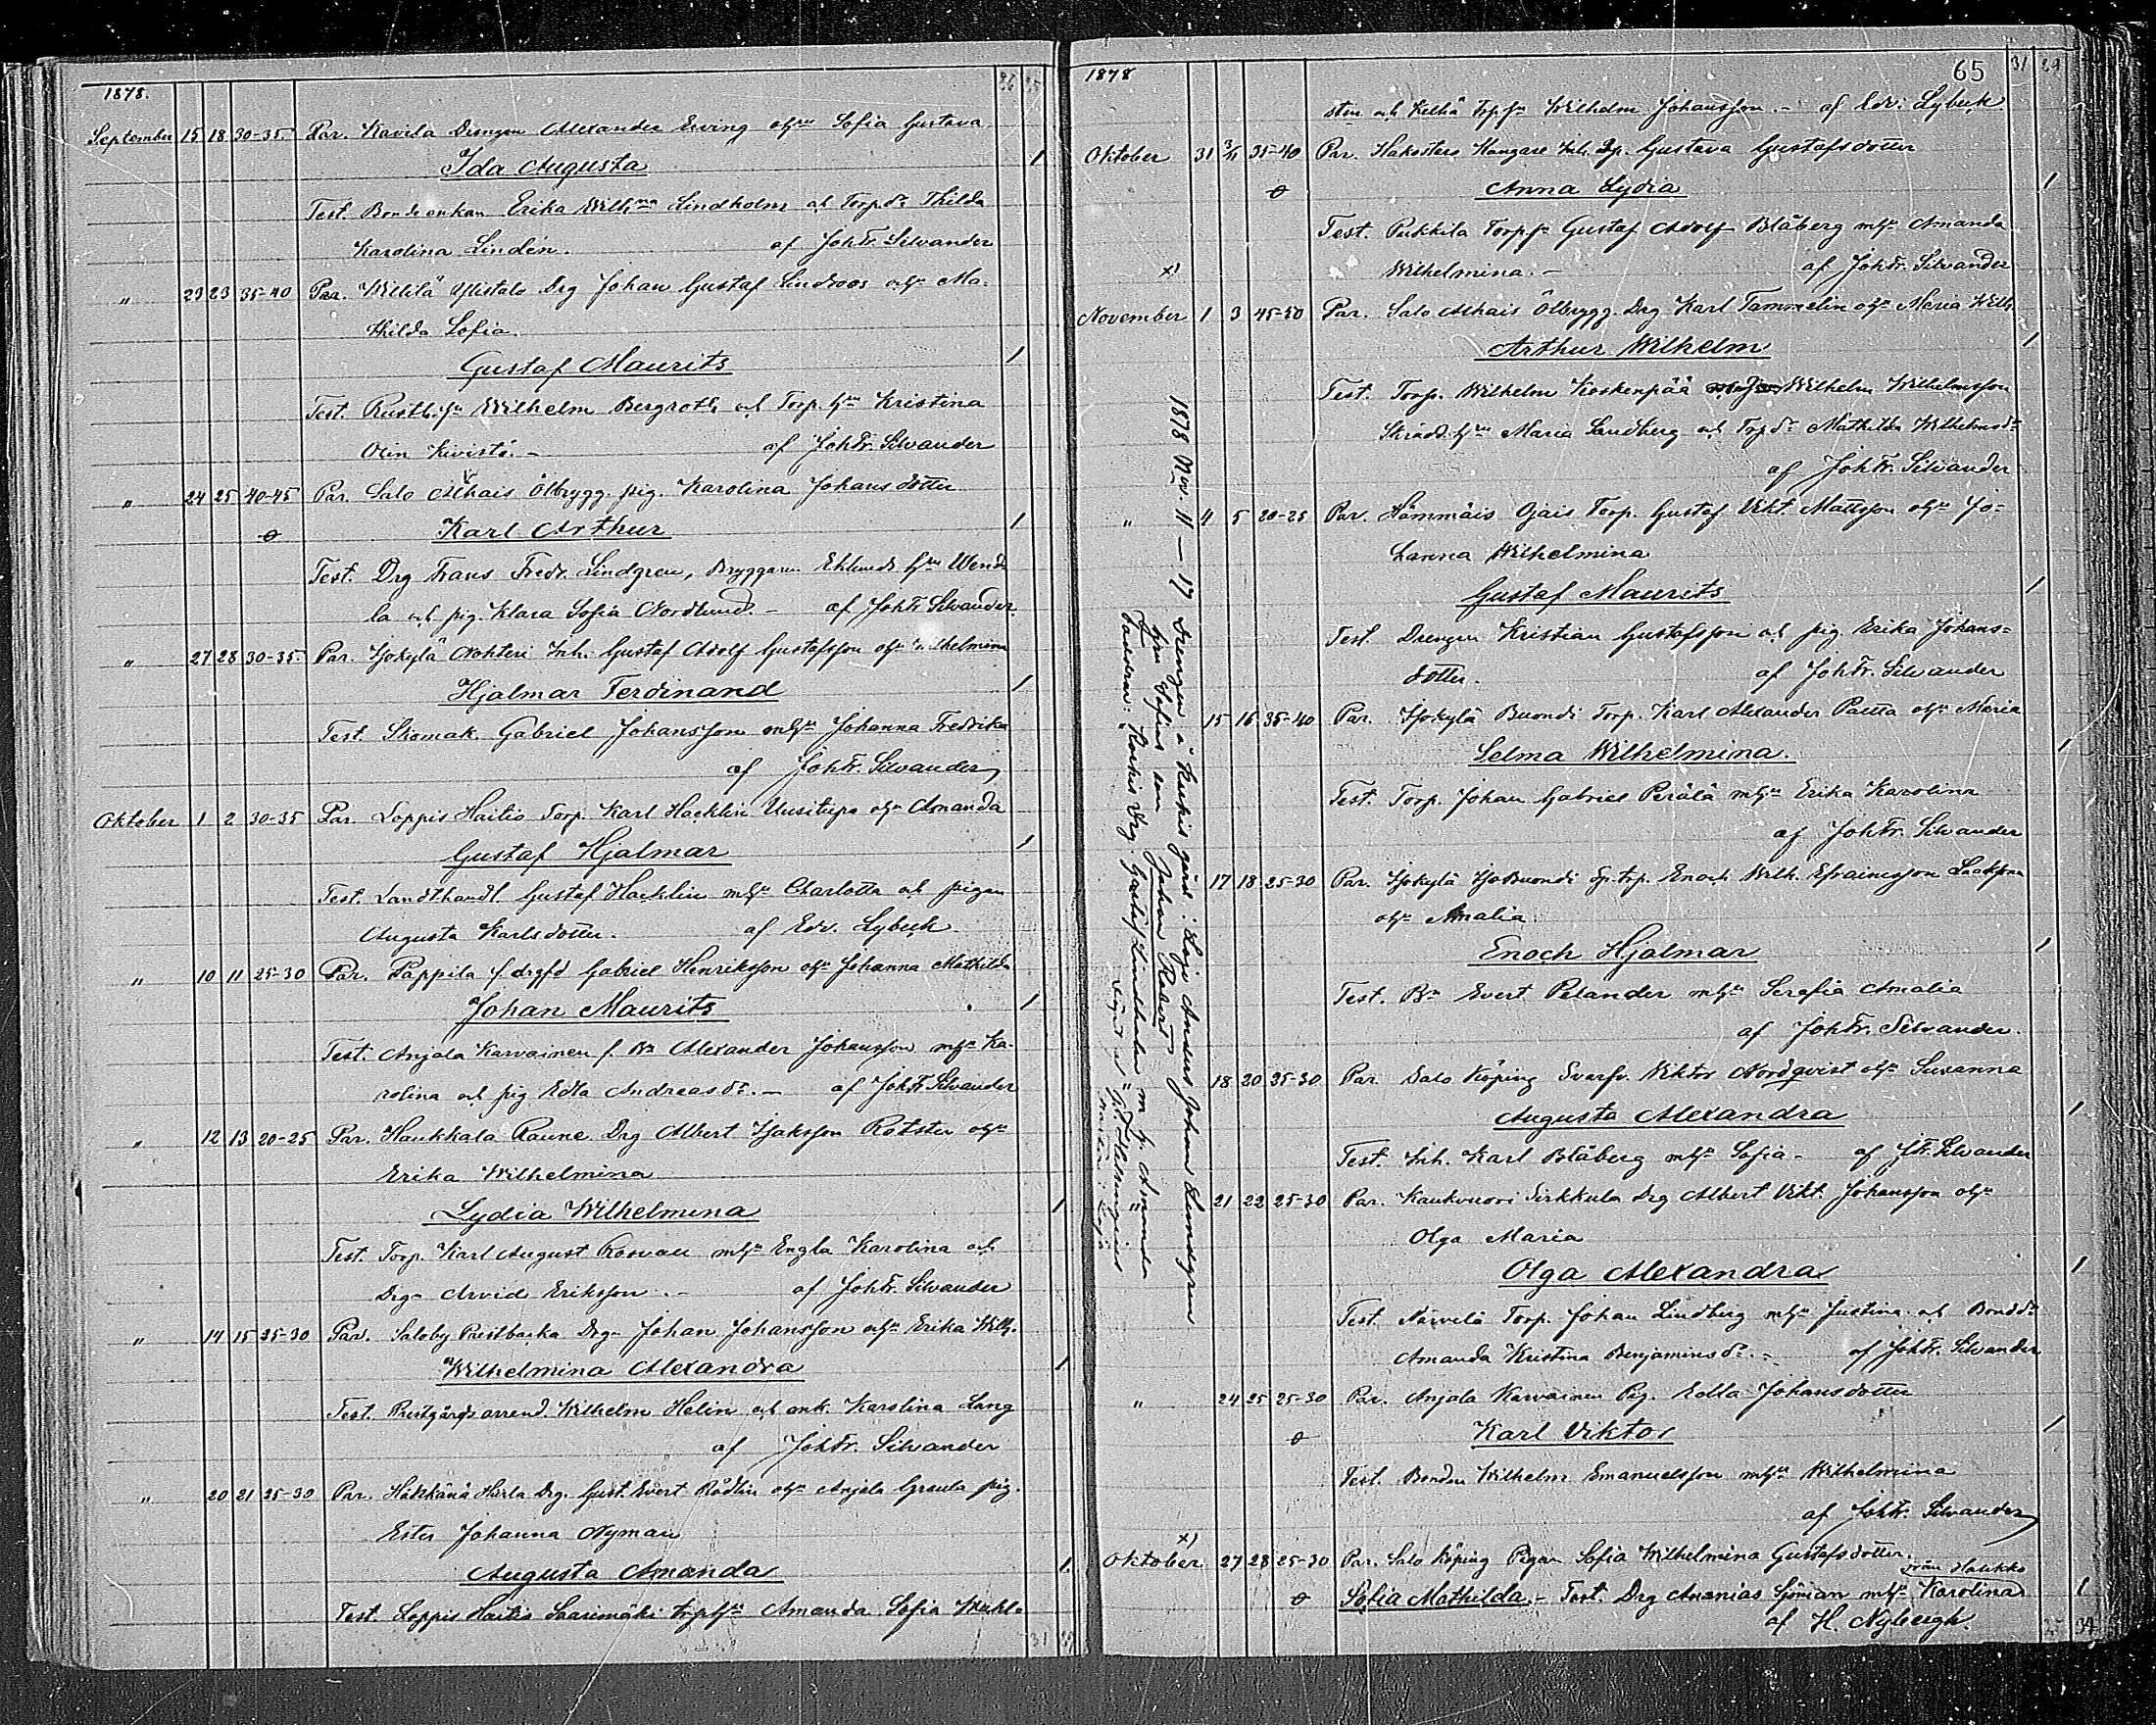 1878.
September 15 18 30-35 Par. Kavila Drengen Alexander Erving o hu Sofia Gustava
Ida Augusta 1
Test. Bondeenkan Erika Wilhna Lindholm och Torp dr Thilda
Karolina Lindén. af Joh Fr. Silvander
" 23 23 35-40 Par. Ylistalo Drg Johan Gustaf Lindroos o hu Ma-
thilda Sofia.
Gustaf Maurits 1
Test. Rusth. sn Wilhelm Bergroth och Torp. hu Kristina
Kivistö. - af Joh Fr. Silvander
" 24 25 40-45 Par. Salo Alhais Ölbrygg. pig. Karolina Johansdotter
Karl Arthur 1
Test. Drg Frans Fredr. Lindgren, Bryggaren Eklunds hu Wende
la och pig. Klara Sofia Nordlund. - af Joh Fr Silvander
" 27 28 30-35. Par. Isokylä Inh. Gustaf Adolf Gustafsson o hu Wilhelmina
Hjalmar Ferdinand 1
Test. Skomak. Gabriel Johansson m hu Johanna Fredrika
af Joh Fr. Silvander
Oktober 1 2 30-35 Par. Loppis Haitio Torp. Karl Hacklin Uusitupa o hu Amanda
Gustaf Hjalmar 1
Test. Landthandl. Gustaf Hacklin m hu Charlotta och pigan
Augusta Karlsdotter. af Edv. Lybeck
" 10 11 25-30 Par. Pappila f. Gabriel Henriksson o hu Johanna Mathilda
Johan Maurits 1
Test. Anjala Karvainen f. Bn Alexander Johansson m hu Ka-
rolina och pig Edla Andreas dr. - af Joh Fr Silvander
" 12 13 20-25 Par. Haukkala Raune Drg Albert Isaksson Rotsten o hu
Erika Wilhelmina
Lydia Wilhelmina 1
Test. Torp. Karl August m hu Engla Karolina och
Drg Arvid Eriksson. - af Joh Fr. Silvander
" 14 15 25-30 Par. Saloby Prestbacka Drg Johan Johansson o hu Erika Wilh.
Wilhelmina Alexandra 1
Test. Prestgårds arrend. Wilhelm Helin och enk. Karolina Lang
af Joh Fr. Silvander
" 20 21 25-30 Par. Härla Drg. Gust. Evert Rådlin o hu Anjala pig.
Ester Johanna Nyman
Augusta Amanda 1
Test. Loppis Haitio Saarimäki torp hu Amanda Sofia
1878 65 31
och Torp sn Wilhelm Johansson. - af Edv. Lybeck
Oktober 31 3/11 35-40 Par. Hakostaro Kangare Inh. Gustava Gustafsdotter
Anna Lydia 1
Test. Pukkila Torp sn Gustaf Adolf Blåberg m hu Amanda
x) Wilhelmina. - af Joh Fr. Silvander
November 1 3 45-50 Par. Salo Alhais Ölbrygg. Drg Karl Tammelin o hu Maria Wilh.
Arthur Wilhelm 1
Test. Torp. Wilhelm Koskenpää Wilhelm Wilhelmsson
Skrädd. hu Maria Sandberg och Torp dr Mathilda Wilhelms dr
af Joh Fr. Silvander
" 4 5 20-25 Par. Hämmäis Ojais Torp. Gustaf Vikt. Mattsson o hu Jo-
hanna Wilhelmina
Gustaf Maurits 1
Test. Drengen Kristian Gustafsson och pig. Erika Johans-
dotter. af Joh Fr. Silvander
15 16 35-40 Par. Isokylä Buondi Torp. Karl Alexander o hu Maria
Selma Wilhelmina. 1
Test. Torp. Johan Gabriel Perälä m hu Erika Karolina
af Joh Fr. Silvander
17 18 25-30 Par. Isokylä IsoBuondi Enoch Wilh. Efraimsson
o hu Amalia
Enoch Hjalmar 1
Test. Bn Evert Pelander m hu Serafia Amalia
af Joh Fr. Silvander.
18 20 25-30 Par. Salo Köping Svarfv. Viktor Nordqvist o hu Susanna
Augusta Alexandra 1
Test. Inh. Karl Blåberg m hu Sofia - af J Fr. Silvander
" 21 22 25-30 Par. Kaukvuori Sirkkula Drg Albert Vikt. Johansson o hu
Olga Maria
Olga Alexandra 1
Test. Torp. Johan Lindberg m hu Justina och Bond dr
Amanda Kristina Benjamins dr. - af Joh Fr. Silvander
" 24 25 25-30 Par. Anjala Karvainen Pig. Edla Johansdotter
Karl Viktor 1
Test. Bonden Wilhelm Emanuelsson m hu Wilhelmina
af Joh Fr. Silvander
x)
Oktober 27 28 25-30 Par. Salo Köping Pigan Sofia Wilhelmina Gustafsdotter.
från Halikko
Sofia Mathilda. - Test. Drg Ananias m hu Karolina 1
af H. Nybergh.
1878 Nov. 11 - 17 Drengen å gård: Anders Johan Lundgren
hu Sofias son Johan Robert
Faddrar: Drg Gustaf Lindholm m h. Amanda